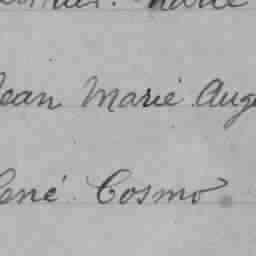 Jean Marie Aug
René Cosmo